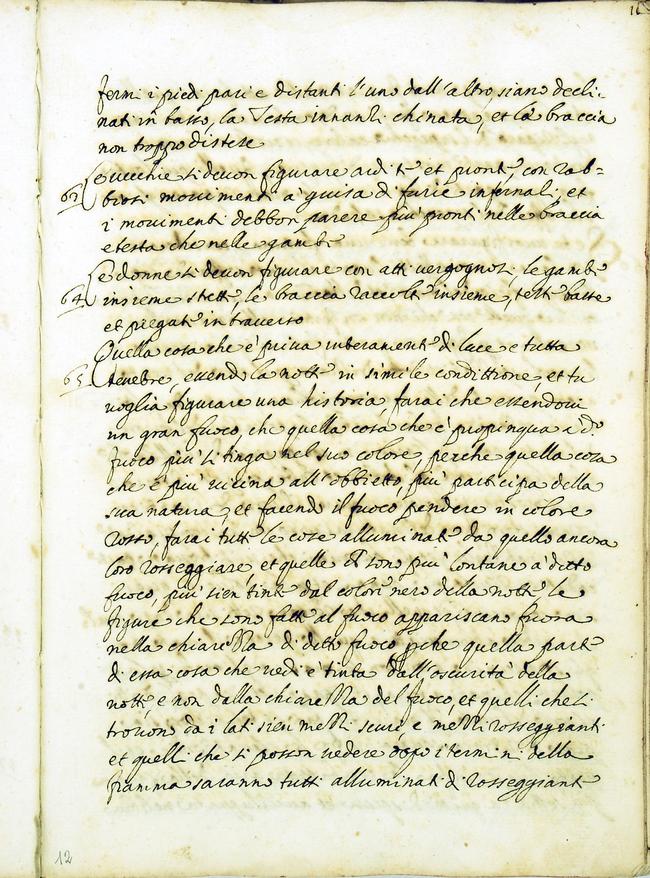 16
fermi i piedi pari e distanti l'uno dall'altro, siano decli-
nati in basso, la Testa innanzi chinata, et le braccia
non troppo distese
63 Le vecchie si devon figurare ardite et pronte, con rab=
biosi movimenti à guisa di furie infernali, et
i movimenti debbon parere più pronti nelle braccia
e testa che nelle gambe
64 Le donne si devon figurare con atti vergognosi, le gambe
insieme strette, le braccia raccolte insieme, teste basse
et piegate in traverso
Quella cosa che è priva interamente di luce e tutta
65 tenebre, essendo la notte in simile condittione, et tu
voglia figurare una historia, farai che essendovi
un gran fuoco, che quella cosa che è propinqua à do
fuoco più si tinga nel suo colore, perche quella cosa
che è più vicina all'obbietto, più participa della
sua natura, et facendo il fuoco pendere in colore
rosso, farai tutte le cose alluminate da quello ancora
loro rosseggiare, et quelle che sono più lontane à detto
fuoco, più sien tinte dal colore nero della notte, le
figure che sono fatte al fuoco appariscano scure
nella chiarezza di detto fuoco pche quella parte
di essa cosa che vedi è tinta dall'oscurità della
notte, e non dalla chiarezza del fuoco, et quelli che si
trovono da i lati sien mezzi scuri, e mezzi rosseggianti
et quelli che si posson vedere dopo i termini della
fiamma saranno tutti alluminati di rosseggiante
12